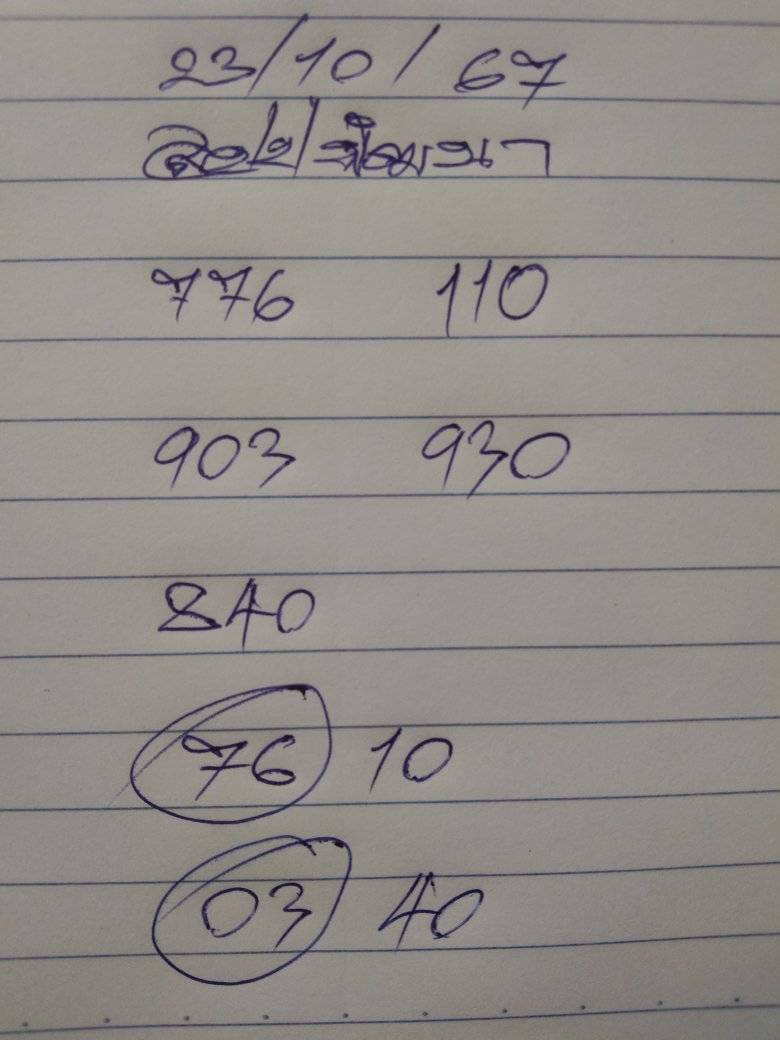 23/10/67
776 110
903 930
840
76 10
03 40